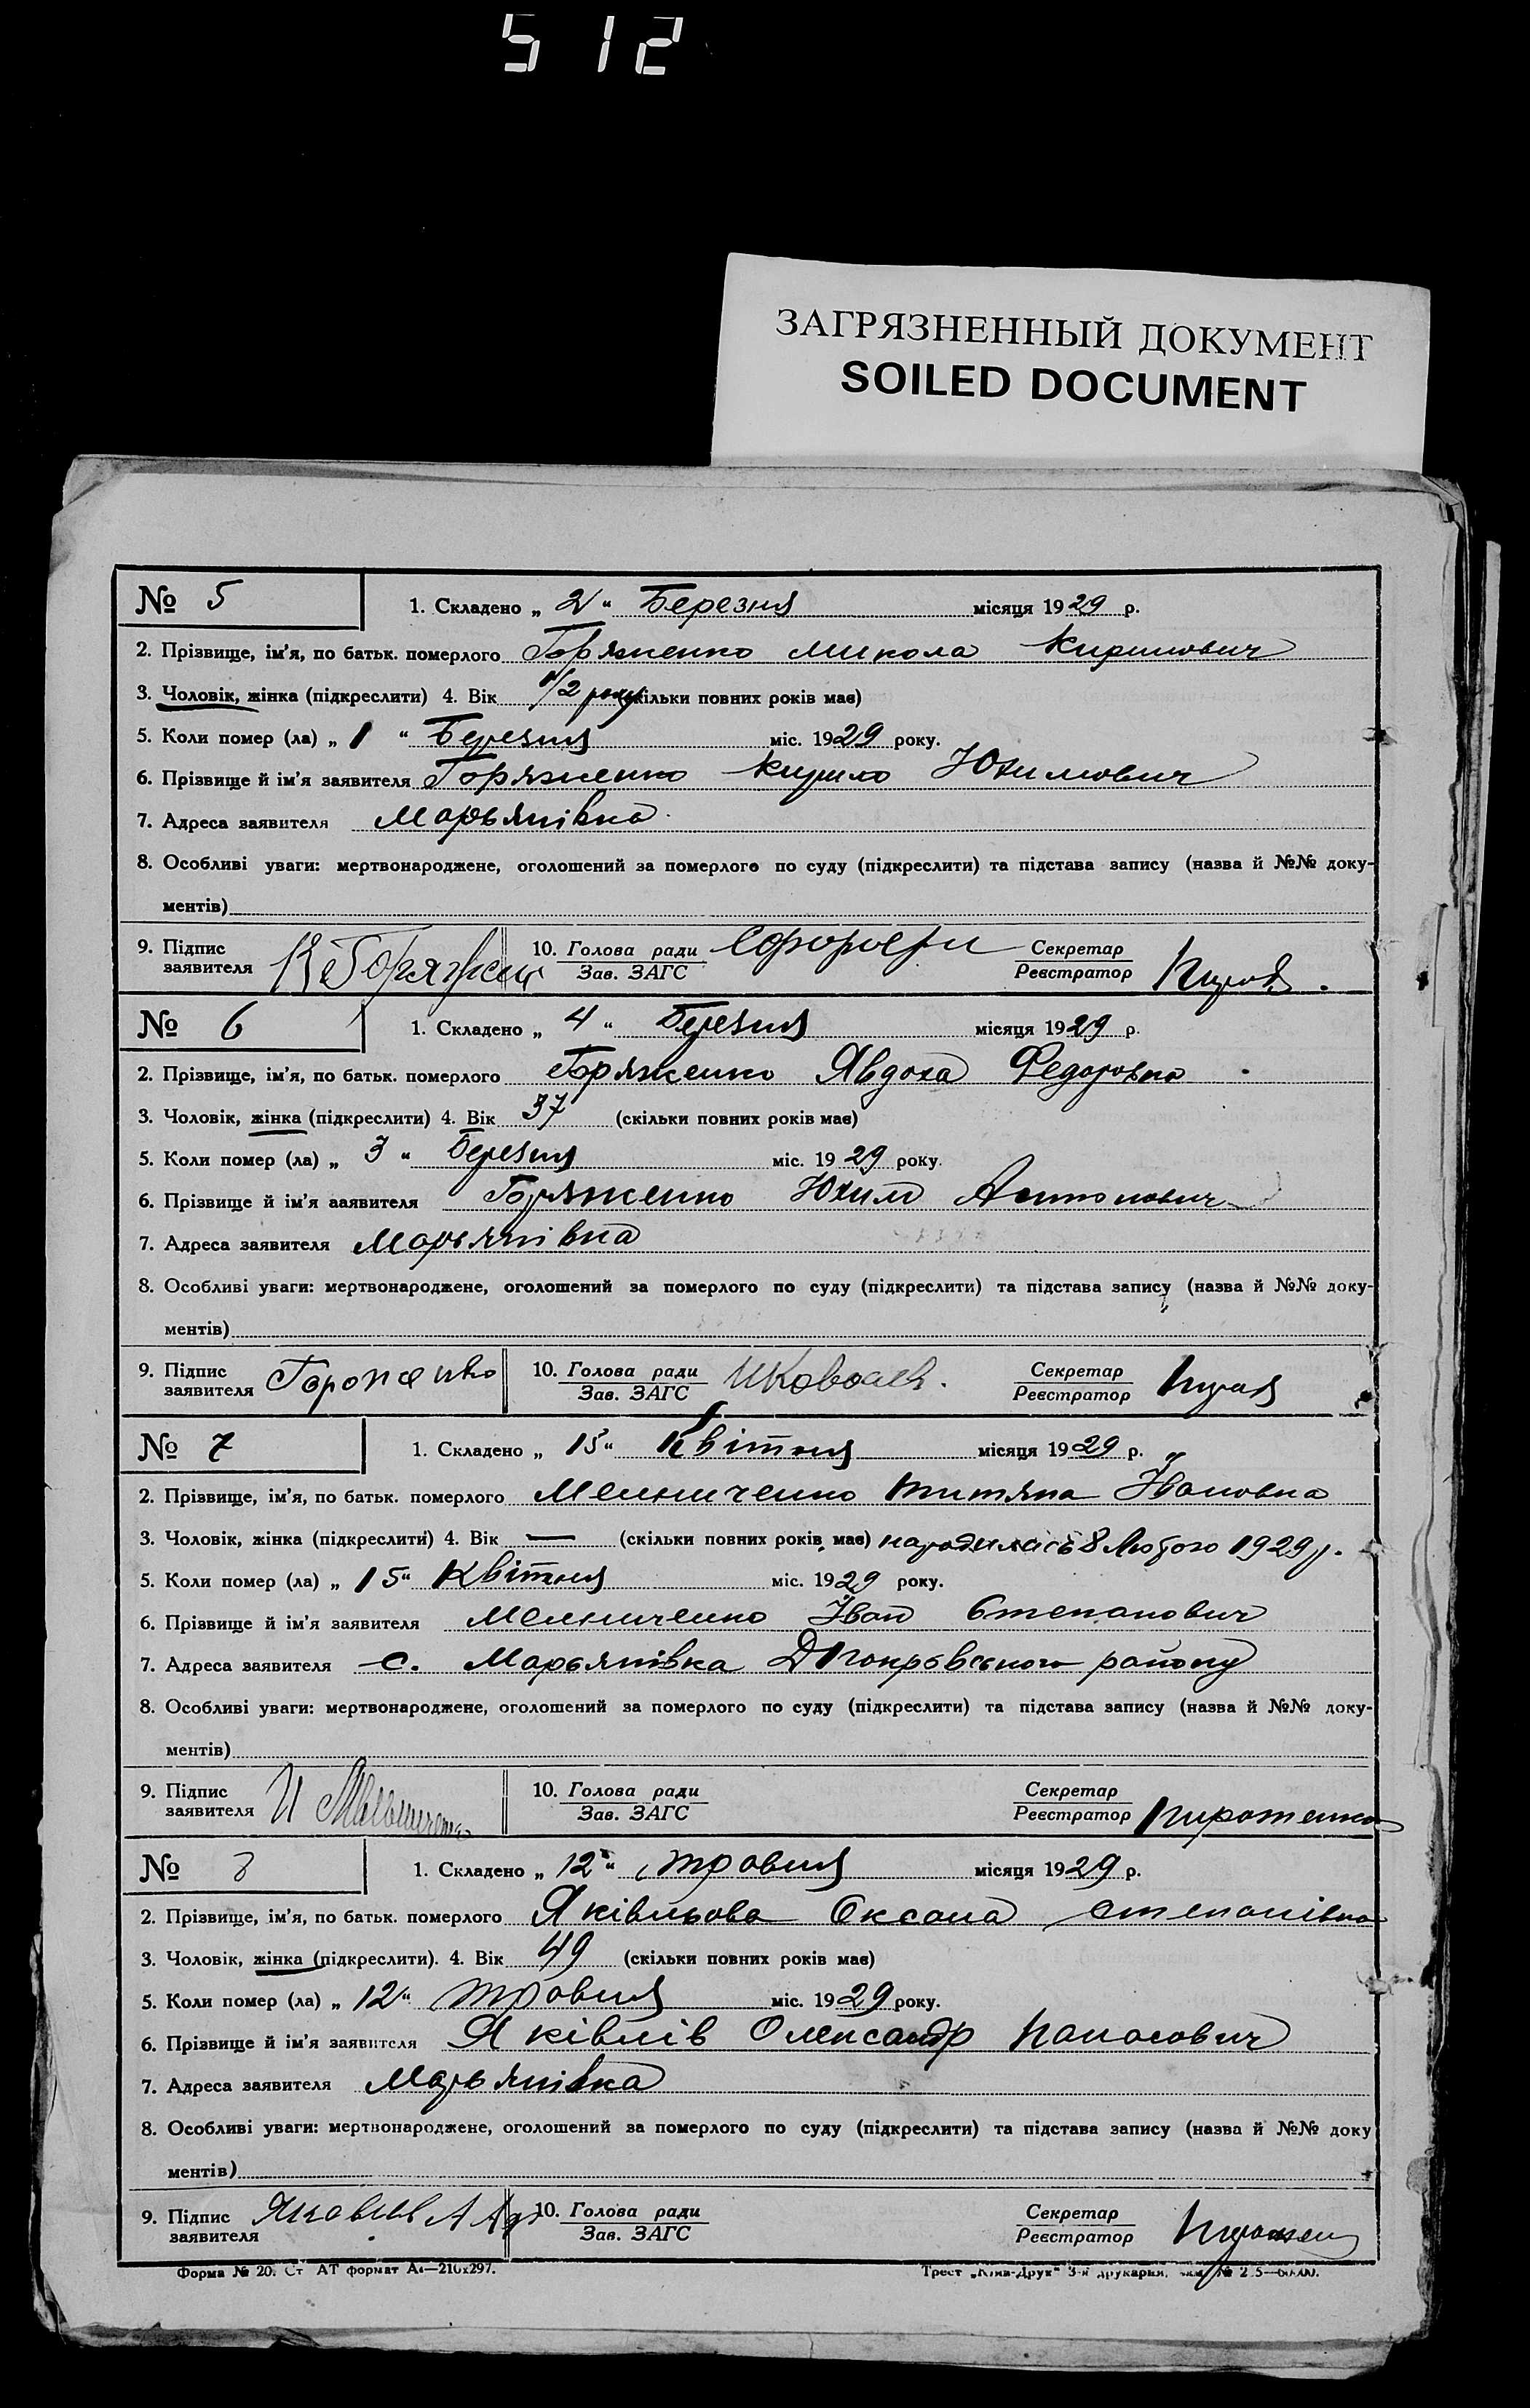 512
ЗАГРЯЗНЕННЫЙ ДОКУМЕНТ
SOILED DOCUMENT
№ 5 1. Складено „ 2 “ Березня місяця 1929 р.
2. Прізвище, ім’я, по батьк. померлого Горяженко Микола Кирилович
3. Чоловік, жінка (підкреслити) 4. Вік 1/2 року скільки повних років має)
5. Коли помер (ла) „ 1 “ Березня міс. 1929 року.
6. Прізвище й ім’я заявителя Горяженко Кирило Юхимович
7. Адреса заявителя Марьянівка
8. Особливі уваги: мертвонароджене, оголошений за померлого по суду (підкреслити) та підстава запису (назва й №№ доку-
ментів)
9. Підпис заявителя 10. Голова ради Зав. ЗАГС Секретар Реєстратор
№ 6 1. Складено „ 4 “ Березня місяця 1929 р.
2. Прізвище, ім’я, по батьк. померлого Горяженко Явдоха Федоровна
3. Чоловік, жінка (підкреслити) 4. Вік 37 (скільки повних років має)
5. Коли помер (ла) „ 3 “ Березня міс. 1929 року.
6. Прізвище й ім’я заявителя Горяженко Юхим Антонович
7. Адреса заявителя Марьянівка
8. Особливі уваги: мертвонароджене, оголошений за померлого по суду (підкреслити) та підстава запису (назва й №№ доку-
ментів)
9. Підпис заявителя 10. Голова ради Зав. ЗАГС Секретар Реєстратор
№ 7 1. Складено „ 15 “ Квітня місяця 1929 р.
2. Прізвище, ім’я, по батьк. померлого Мельниченко Титяна Івановна
3. Чоловік, жінка (підкреслити) 4. Вік — (скільки повних років має) народилась 8 Лютого 1929 р.
5. Коли помер (ла) „ 15 “ Квітня міс. 1929 року.
6. Прізвище й ім’я заявителя Мельниченко Іван Степанович
7. Адреса заявителя с. Марьянівка району
8. Особливі уваги: мертвонароджене, оголошений за померлого по суду (підкреслити) та підстава запису (назва й №№ доку-
ментів)
9. Підпис заявителя И Мельниченко 10. Голова ради Зав. ЗАГС Секретар Реєстратор
№ 8 1. Складено „ 12 “ травня місяця 1929 р.
2. Прізвище, ім’я, по батьк. померлого Яківльова Оксана Степанівна
3. Чоловік, жінка (підкреслити). 4. Вік 49 (скільки повних років має)
5. Коли помер (ла) „ 12 “ травня міс. 1929 року.
6. Прізвище й ім’я заявителя Яківлів Олександр Панасович
7. Адреса заявителя Марьянівка
8. Особливі уваги: мертвонароджене, оголошений за померлого по суду (підкреслити) та підстава запису (назва й №№ доку
ментів)
9. Підпис заявителя 10. Голова ради Зав. ЗАГС Секретар Реєстратор
Форма № 20. Ст АТ формат А4—210х297. Трест „Київ-Друк“ 3-я друкарня,